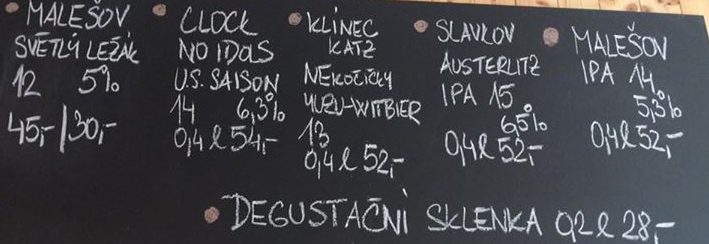 MALEŠOV
SVĚTLÝ LEŽÁK
12 5%
45,-/30,-
CLOCK
NO IDOLS
U.S. SAISON
14 6,3%
0,4 l 54,-
KLÍNEC
KATZ
NEKOČIČKY
YUZU-WITBIER
13
0,4 l 52,-
SLAVKOV
AUSTERLITZ
IPA 15
6,5%
0,4 l 52,-
MALEŠOV
IPA 14
5,3%
0,4 l 52,-
DEGUSTAČNÍ SKLENKA 0,2 l 28,-